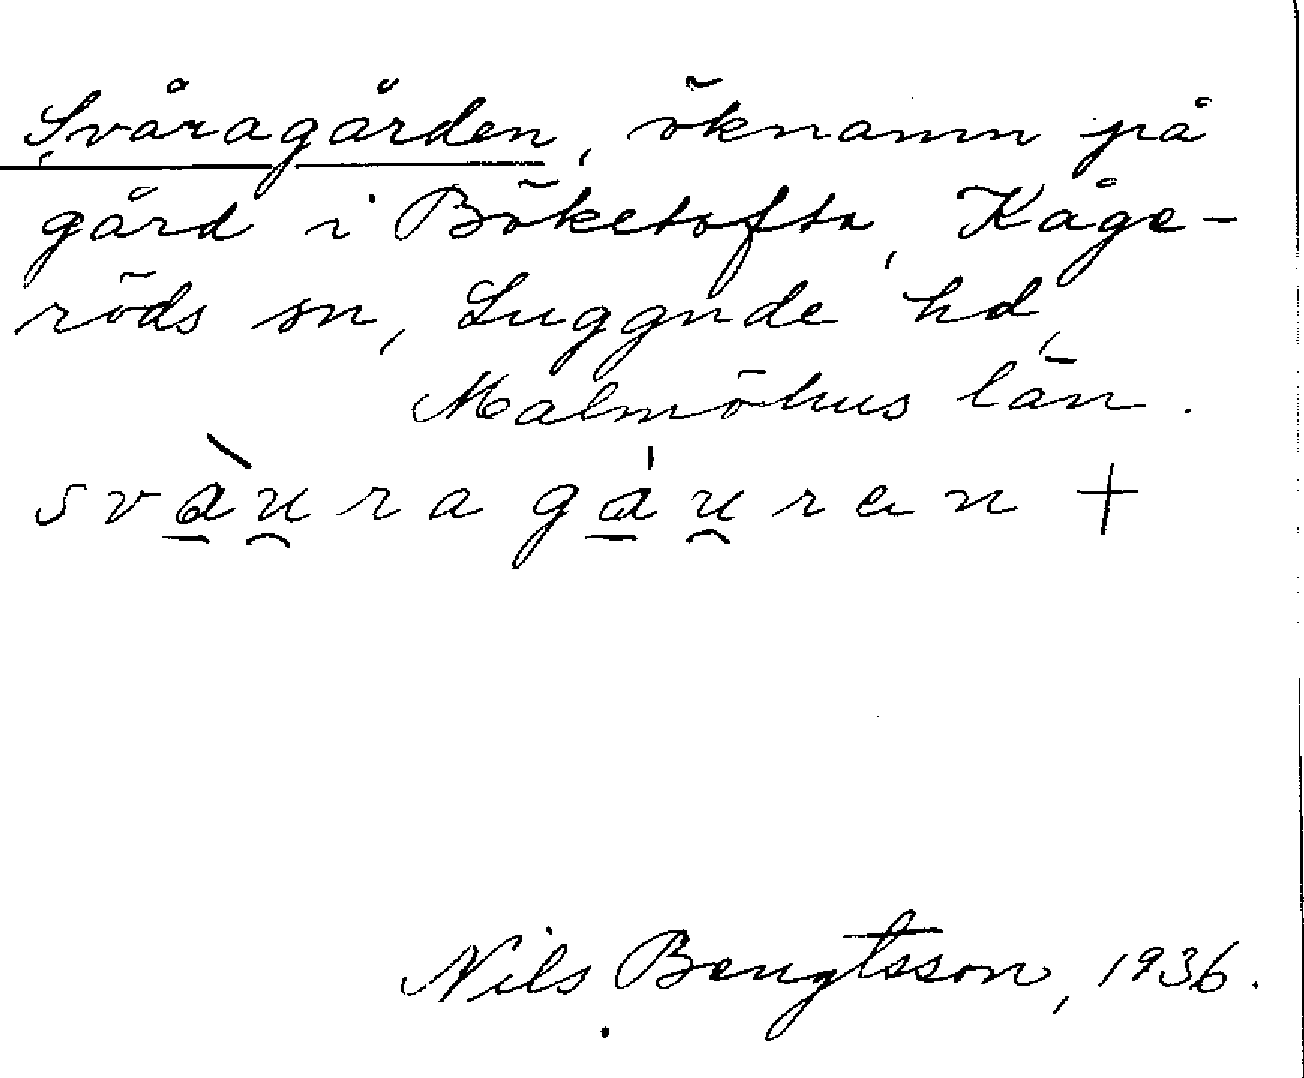 Svåragården, öknamn på
gård i Böketofta, Kåge-
röds sn, Luggude hd,
Malmöhus län.
svàu̯ragáu̯ren +
Nils Bengtsson, 1936.